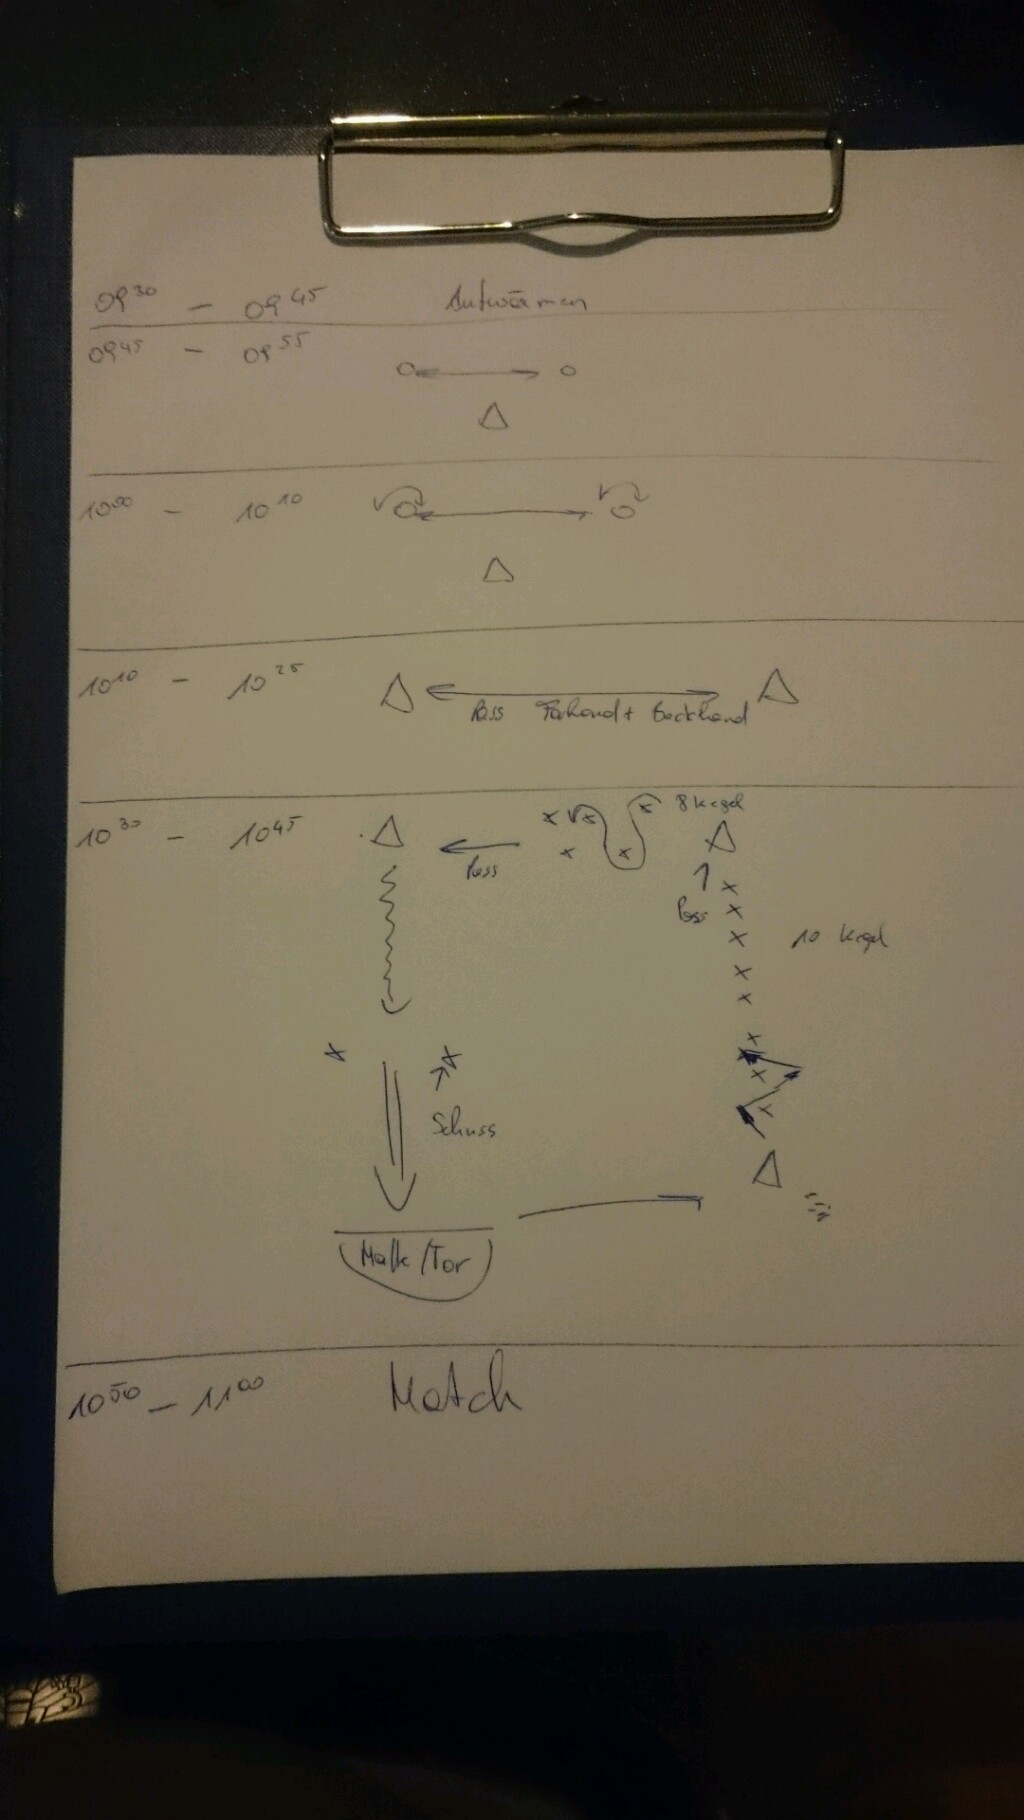 09³⁰ – 09⁴⁵ Aufwärmen
09⁴⁵ – 09⁵⁵
10⁰⁰ – 10¹⁰
10¹⁰ – 10²⁵
Pass Forhand + Backhand
10³⁰ – 10⁴⁵
8 Kegel
Pass
Pass
10 Kegel
Schuss
Matte/Tor
10⁵⁰ – 11⁰⁰ Match